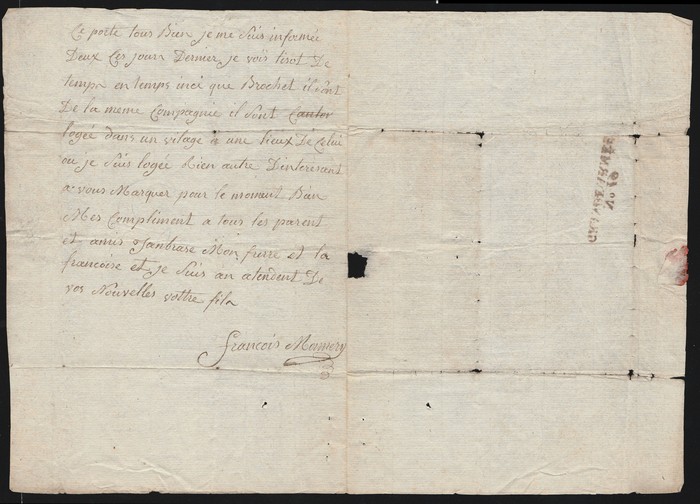 ce porte tous Bien je me suis informée
Deux Ces jours Dernier je vois tirot De
temps en temps inci que Brochet il sont
De la meme Compagnie il sont Cantor
logée dans un vilage a une lieux De Celui
ou je suis logée Rien autre D'interisant
a vous Marquer pour le moment Bien
Mes Compliment a tous les parent
et amis J'anbrase Mon frere et la
francoise et je suis an atendent De
vos Nouvelles vottre fils
francois
No 16